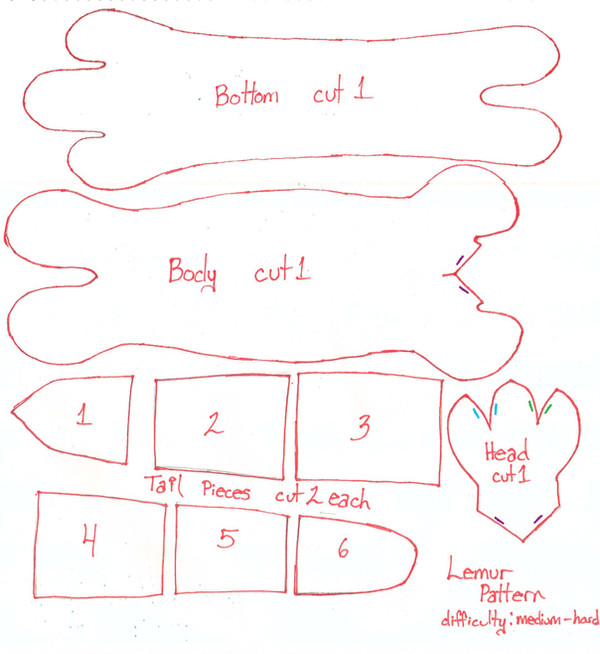 Bottom cut 1
Body cut 1
1
2
3
Tail Pieces cut 2 each
4
5
6
Head
cut 1
Lemur
Pattern
difficulty: medium-hard